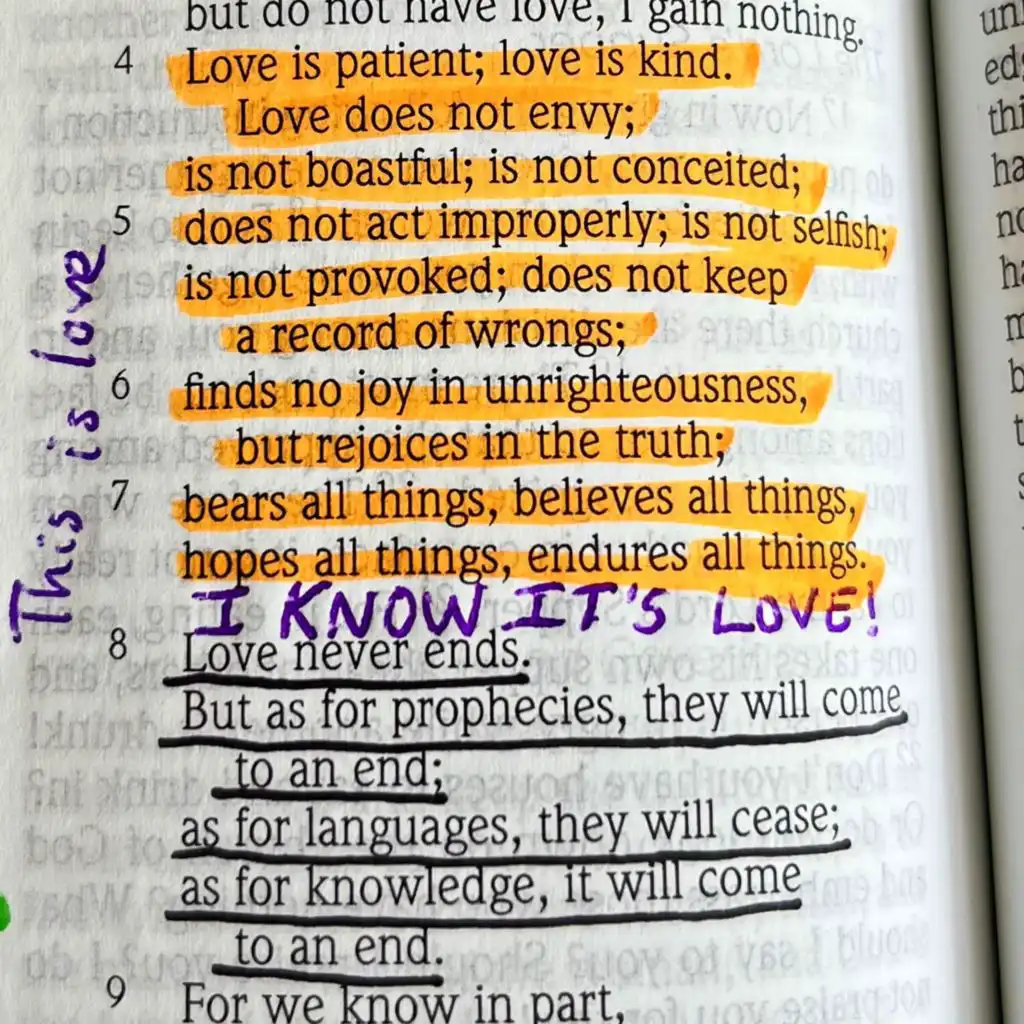 but do not have love, I gain nothing.
4 Love is patient; love is kind.
Love does not envy;
is not boastful; is not conceited;
5 does not act improperly; is not selfish;
is not provoked; does not keep
a record of wrongs;
6 finds no joy in unrighteousness,
but rejoices in the truth;
7 bears all things, believes all things,
hopes all things, endures all things.
I KNOW IT'S LOVE!
8 Love never ends.
But as for prophecies, they will come
to an end;
as for languages, they will cease;
as for knowledge, it will come
to an end.
9 For we know in part,
This is love